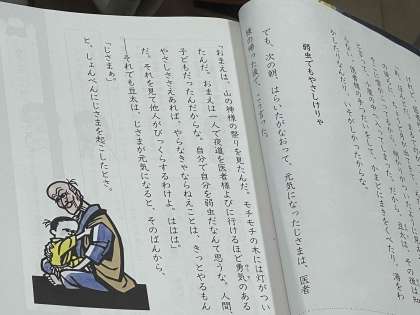 まきをくべたり、湯をわ
かしたりなんだり、いそがしかったからな。
弱虫でもやさしけりゃ
でも、次の朝、はらいたがなおって、元気になったじさまは、医者
様の帰った後で、こう言った。
「おまえは、山の神様の祭りを見たんだ。モチモチの木には灯がつい
たんだ。おまえは一人で夜道を医者様よびに行けるほど勇気のある
子どもだったんだからな。自分で自分を弱虫だなんて思うな。人間、
やさしささえあれば、やらなきゃならねえことは、きっとやるもん
だ。それを見て他人がびっくらするわけよ。ははは。」
――それでも豆太は、じさまが元気になると、そのばんから、
「じさまぁ。」
と、しょんべんにじさまを起こしたとさ。